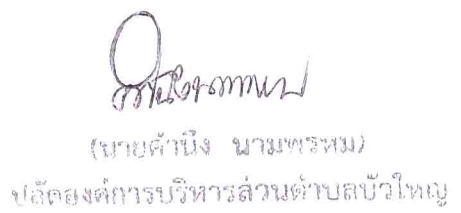 (นายคำนึง นามพรหม)
ปลัดองค์การบริหารส่วนตำบลบัวใหญ่